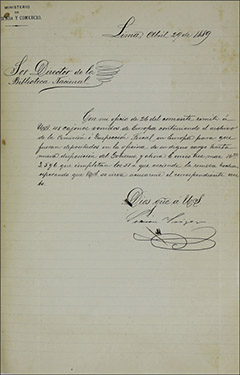 MINISTERIO
DE
HACIENDA Y COMERCIO.
Lima, Abril 29 de 1889
Sor Director de la
Biblioteca Nacional
Con mi oficio de 26 del corriente remití á
US. cajones venidos de Europa conteniendo el archivo
de la Comisión é Inspección Fiscal en Europa para que
fueran depositados en la oficina de su digno cargo hasta
nueva disposición del Gobierno, y ahora
que completan los á que asciende la remesa
esperando que US. se sirva acusarme el correspondiente
bo.
Dios gue. á US.